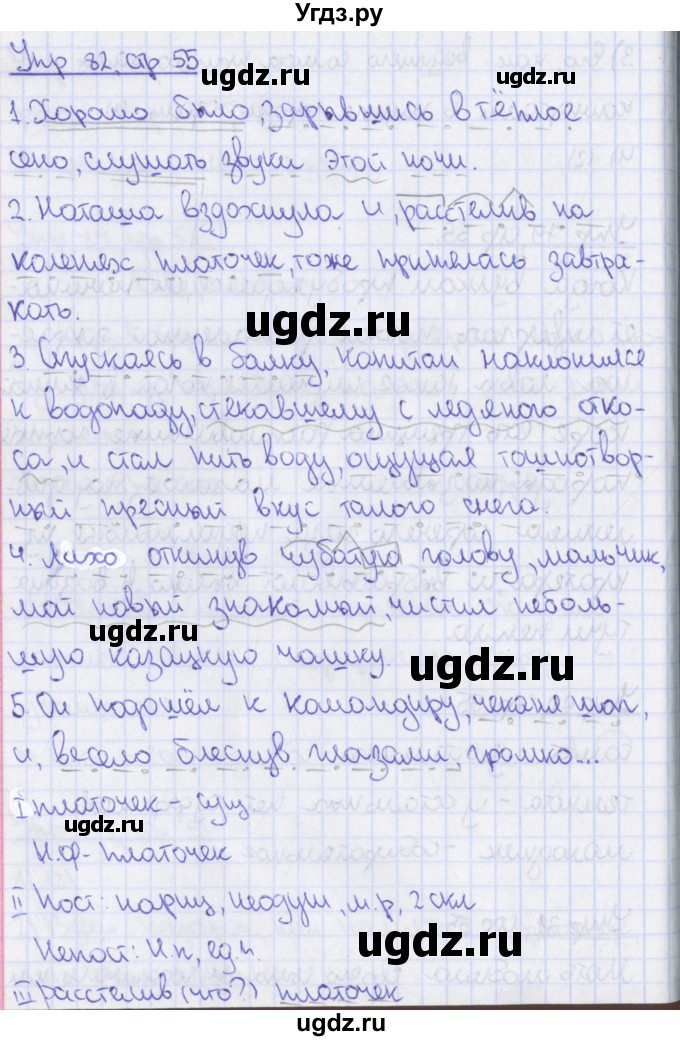 Угдз.ру
Упр 82, стр 55
ugdz.ru
ugdz.ru
1. Хорошо было, зарывшись в тёплое
сено, слушать звуки этой ночи.
ugdz.ru
ugdz.ru
2. Наташа вздохнула и, расстелив на
коленях платочек, тоже принялась завтра-
кать.
ugdz.ru
3. Спускаясь в балку, капитан наклонился
к водопаду, стекавшему с ледяного отко-
са, и стал пить воду, ощущая тошнотвор-
ный пресный вкус талого снега.
ugdz.ru
4. Лихо откинув чубатую голову, мальчик,
мой новый знакомый, чистил неболь-
ugdz.ru
шую казацкую чашку.
ugdz.ru
5. Он подошёл к командиру, чеканя шаг,
и, весело блеснув глазами, громко...
ugdz.ru
I платочек - сущ
Н.ф- платочек
II Пост: нариц, неодуш, м.р, 2 скл
Непост: И.п, ед.ч.
ugdz.ru
ugdz.ru
III расстелив (что?) платочек
ugdz.ru